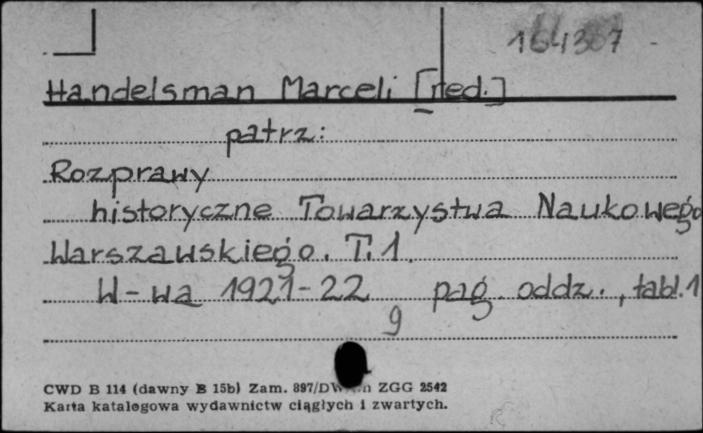 164307
Handelsman Marceli [red.]
patrz:
Rozprawy
historyczne Towarzystwa Naukowego
Warszawskiego. T. 1.
W-wa 1921-22 pag. oddz., tabl. 1
9
CWD B 114 (dawny B 15b) Zam. 897/DW ZGG 2542
Karta katalogowa wydawnictw ciągłych i zwartych.